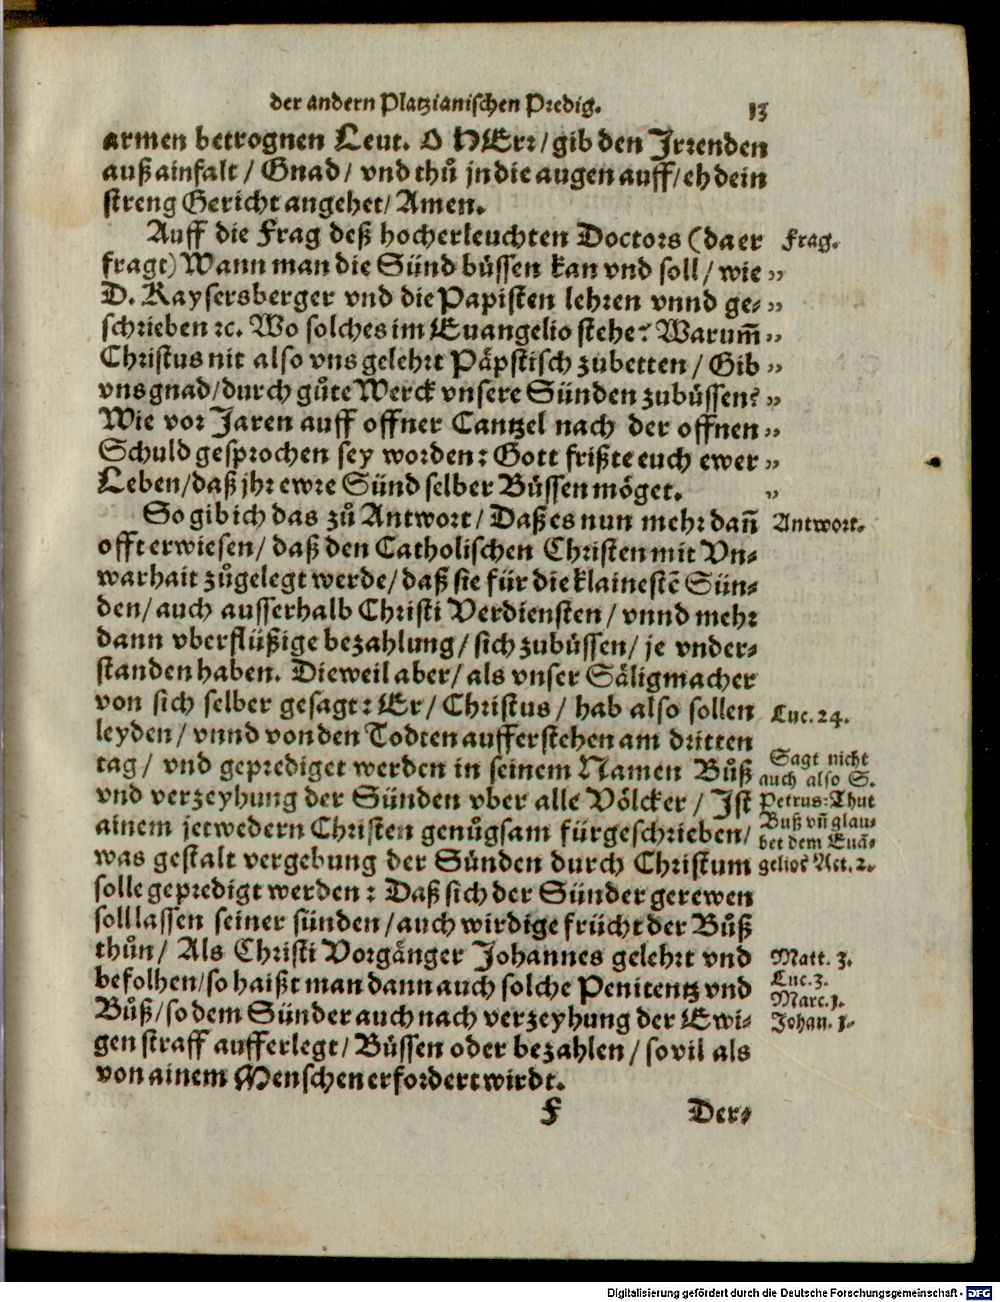 der andern Platzianischen Predig. 13
armen betrognen Leut. O HErr/gib den Irrenden
auß ainfalt / Gnad/ vnd thů jn die augen auff/eh dein
streng Gericht angehet/ Amen.
Auff die Frag deß hocherleuchten Doctors (da er Frag.
fragt) Wann man die Sünd büssen kan vnd soll / wie „
D. Kaysersberger vnd die Papisten lehren vnnd ge⸗ „
schrieben ꝛc. Wo solches im Euangelio stehe? Warum̃ „
Christus nit also vns gelehrt Päpstisch zubetten / Gib „
vns gnad/durch gůte Werck vnsere Sünden zubüssen? „
Wie vor Jaren auff offner Cantzel nach der offnen „
Schuld gesprochen sey worden: Gott frißte euch ewer „
Leben/daß jhr ewre Sünd selber Büssen möget. „
So gib ich das zů Antwort/ Daß es nun mehr dañ Antwort.
offt erwiesen/ daß den Catholischen Christen mit Vn⸗
warhait zůgelegt werde/daß sie für die klainestẽ Sün⸗
den/ auch ausserhalb Christi Verdiensten / vnnd mehr
dann vberflüßige bezahlung/ sich zubüssen/ je vnder⸗
standen haben. Dieweil aber/ als vnser Säligmacher
von sich selber gesagt: Er/ Christus/ hab also sollen Luc. 24.
leyden/ vnnd von den Todten aufferstehen am dritten
tag/ vnd geprediget werden in seinem Namen Bůß
vnd verzeyhung der Sünden vber alle Völcker / Ist
ainem jetwedern Christen genůgsam fürgeschrieben/
was gestalt vergebung der Sünden durch Christum
solle gepredigt werden: Daß sich der Sünder gerewen
soll lassen seiner sünden/auch wirdige frücht der Bůß
thůn/ Als Christi Vorgänger Johannes gelehrt vnd
befolhen/so haißt man dann auch solche Penitentz vnd
Bůß/so dem Sünder auch nach verzeyhung der Ewi⸗
gen straff aufferlegt/ Büssen oder bezahlen/ so vil als
von ainem Menschen erfordert wirdt.
Sagt nicht
auch also S.
Petrus: Thut
Buß vñ glau⸗
bet dem Euã⸗
gelio? Act. 2.
Matt. 3.
Luc. 3.
Marc. 1.
Johan. 1.
F Der⸗
Digitalisierung gefördert durch die Deutsche Forschungsgemeinschaft - DFG